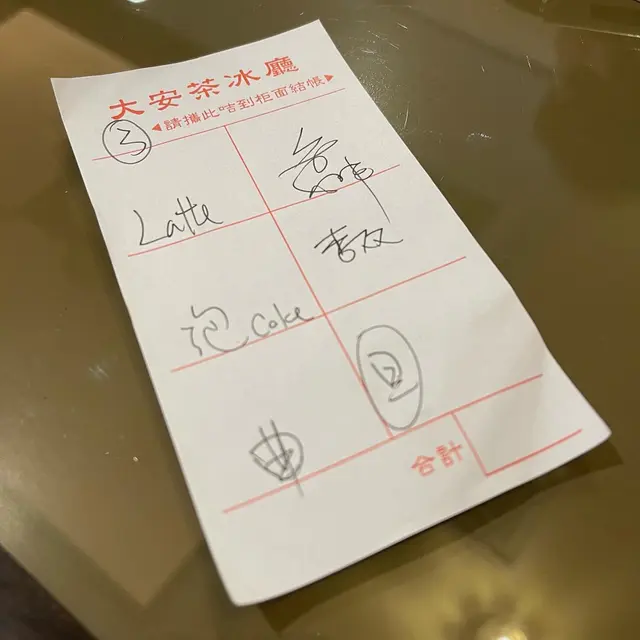 大安茶冰廳
◀請攜此咭到柜面結帳▶
3
Latte
泡 coke
合計